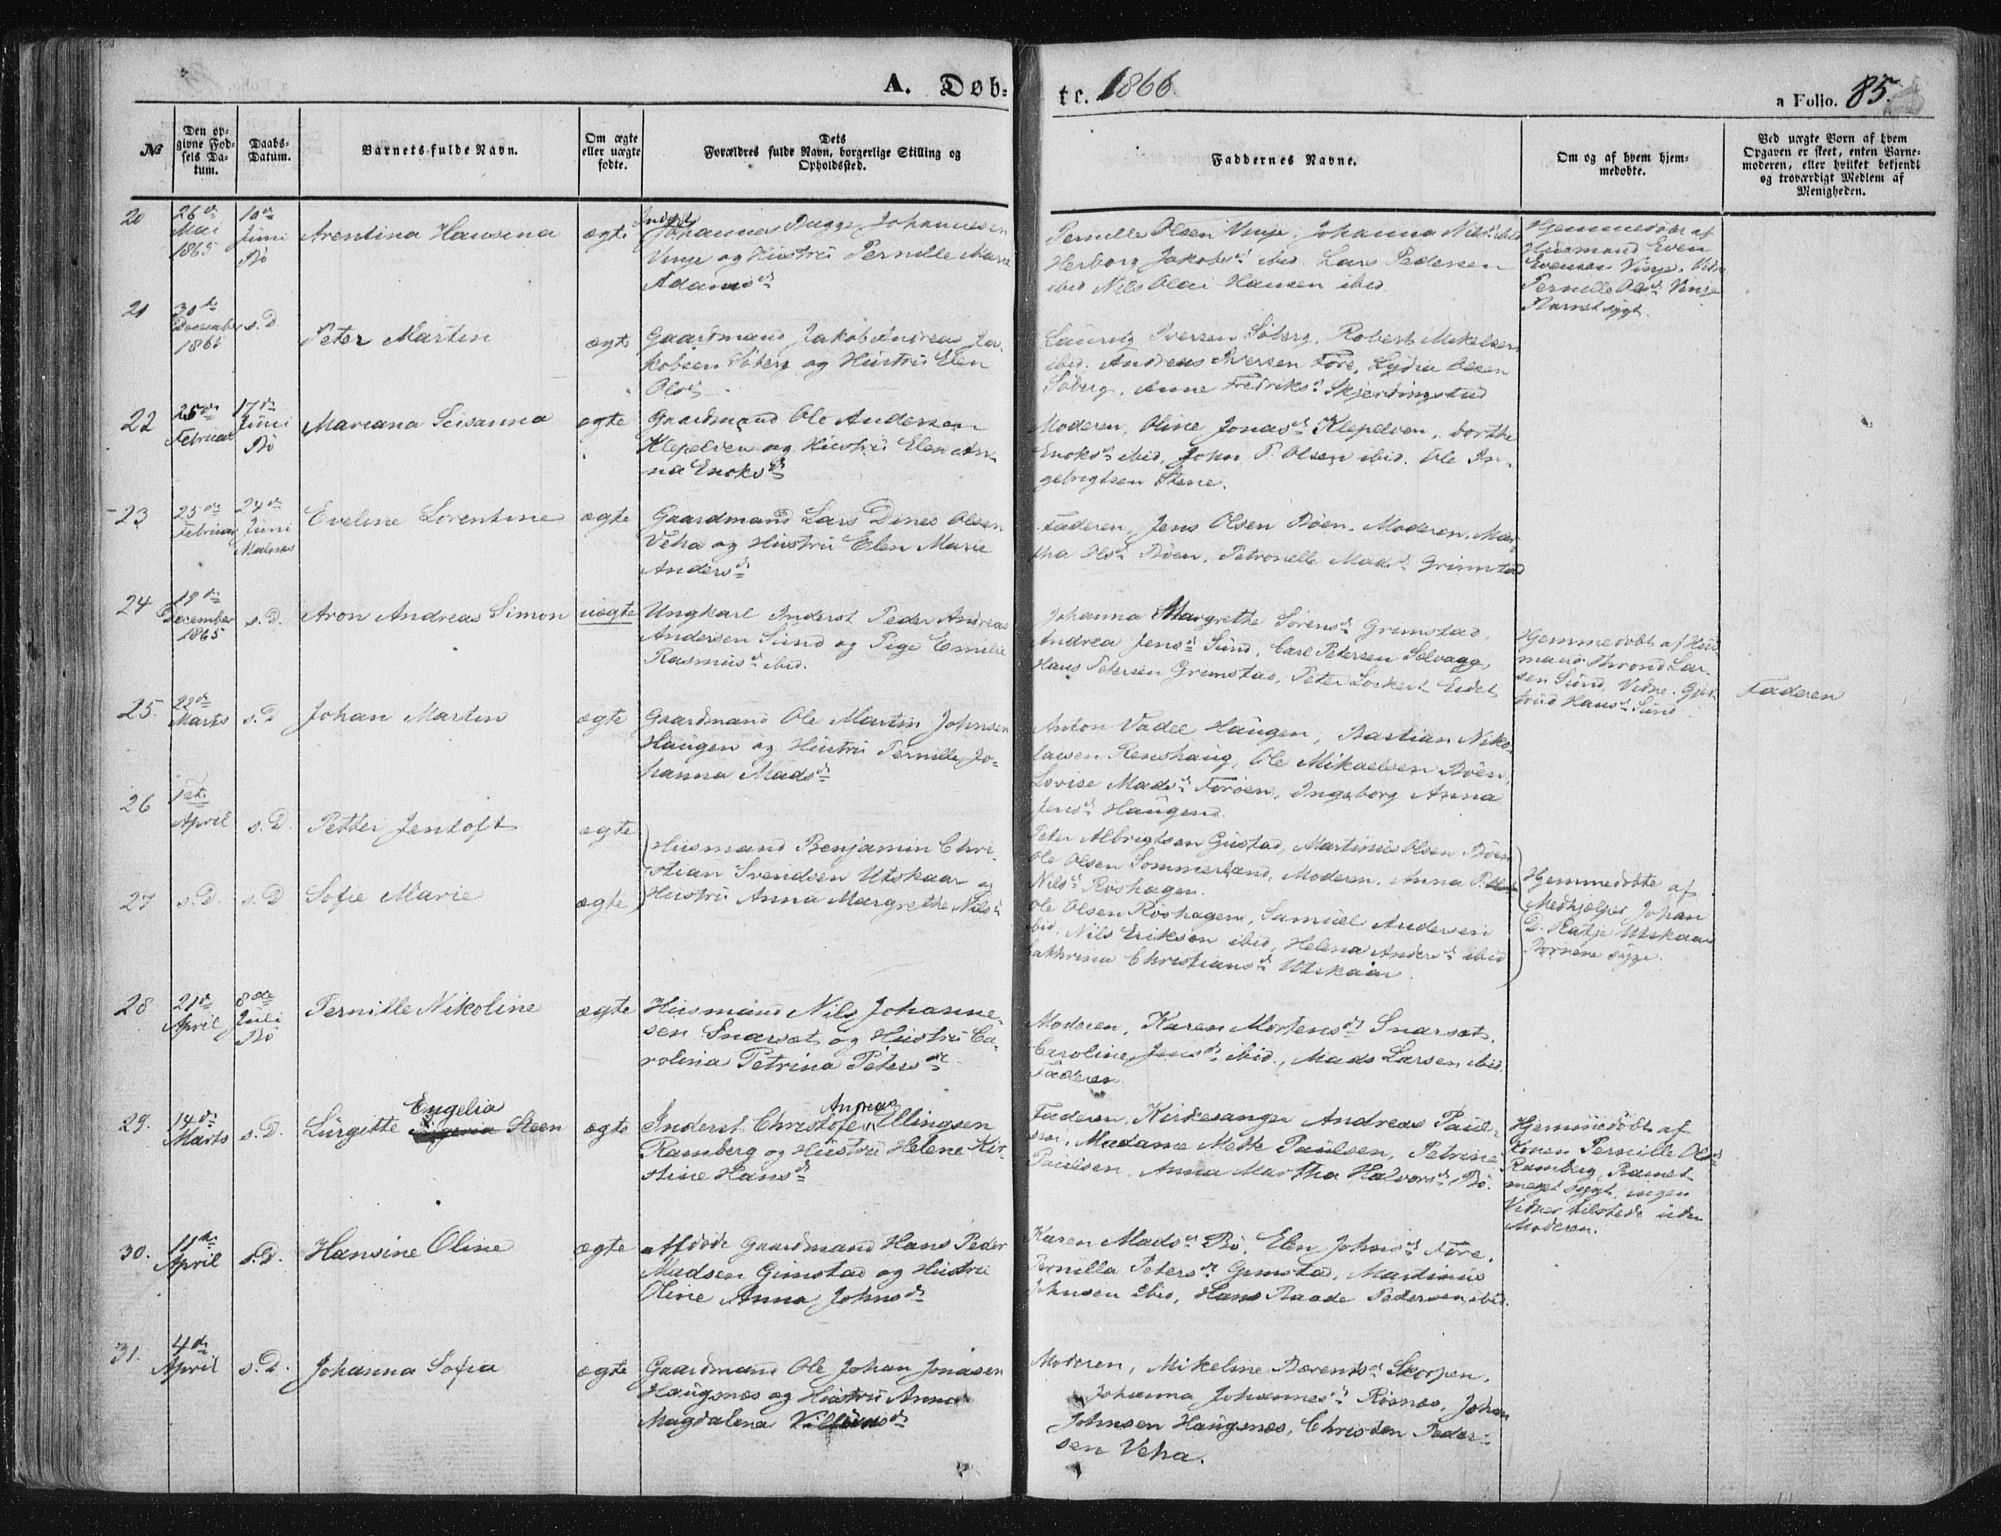 A. Døb-
te. 1866
a Folio. 85.
№
Den op-
givne Fød-
sels Da-
tum.
Daabs-
Datum.
Barnets fulde Navn.
Om ægte
eller uægte
fødte.
Dets
Forældres fulde Navn, borgerlige Stilling og
Opholdssted.
Faddernes Navne.
Om og af hvem hjem-
medøbte.
Ved uægte Børn af hvem
Opgaven er skeet, enten Barne-
moderen, eller hvilket bekjendt
og troværdigt Medlem af
Menigheden.
20
26de
Mai
1865
10de
Juni
Bø
Arentina Hansena
ægte
Inderst
Johannes Bugge Johannessen
Vinje og Hustru Pernille Marie
Adamsd
Pernille Olsen Vinje, Johanna Nilsd ibid
Herborg Jakobsd ibid. Lars Pedersen
ibid Nils Olai Hansen ibid
Hjemmedøbt af
Husmand Even
Evensen Vinje. Vidne
Pernille Olsd Vinje
Barnet sygt.
21
30te
December
1865
s. D
Peter Martin
ægte
Gaardmand Jakob Andreas Ja-
kobsen Søberg og Hustru Elen
Olsd
Lauritz Iversen Søberg, Robert Mikelsen
ibid. Andreas Iversen Føre, Lydia Olsen
Søberg, Anne Fredriksd Skjerfingstad
22
25de
Februar
17de
Juni
Bø
Mariana Susanna
ægte
Gaardmand Ole Andersen
Klepelven og Hustru Elen An-
na Enoksd
Moderen, Oline Jonasd Klepelven, Dorthe
Enoksd ibid, John P. Olsen ibid. Ole In-
gebrigtsen Stene.
23
25de
Februar
24de
Juni
Malnes
Eveline Lorentine
ægte
Gaardmand Lars Dines Olsen
Veha og Hustru Elen Marie
Andersd
Faderen, Jens Olsen Bøen. Moderen, Mar-
tha Olsd Bøen, Petronelle Madsd Grimstad
24
19de
December
1865
s. D.
Aron Andreas Simon
uægte
Ungkarl Inderst Peder Andreas
Andersen Sund og Pige Emilie
Rasmusd ibid.
Johanna Margrethe Sørensd Grimstad,
Andrea Jensd Sund, Carl Petersen Solvaag,
Hans Petersen Grimstad, Peter Lockert Eidet
Hjemmedøbt af Hus-
mand Thrond Lar
sen Sund. Vidne. Gjer
trud Hansd Sund.
Faderen
25.
22de
Marts
s. D
Johan Martin
ægte
Gaardmand Ole Martin Johnsen
Haugen og Hustru Pernille Jo-
hanna Madsd
Anton Vadel Haugen, Bastian Niko-
laisen Renshaug, Ole Mikaelsen Bøen,
Lovise Madsd Førøen, Ingeborg Anna
Jensd Haugend.
26
1ste
April
s. D.
Petter Jentoft
ægte
Husmand Benjamin Chri-
stian Svendsen Utskaar og
Hustru Anna Margrethe Nilsd
Peter Albrigtsen Gustad, Martinus Olsen Bøen
Ole Olsen Sommerland, Moderen, Anna P.
Nilsd Røshagen.
Hjemmedøbte af
Medhjælper Johan
D. Hatje Utskaar
Børnene syge.
27
s. D.
s. D
Sofie Marie
ægte
Ole Olsen Røshagen, Samuel Andersen
ibid, Nils Eriksen ibid, Helena Andersd ibid
Cathrina Christiansd Utskaar.
28
21de
April
8de
Juli
Bø
Pernille Nikoline
ægte
Husmand Nils Johanne-
sen Snarset og Hustru Ca-
rolina Petrina Petersd
Moderen, Karen Mortensd Snarset.
Caroline Jensd ibid., Mads Larsen ibid
Faderen
29.
14de
Marts
s. D.
Lurgitte Engelia Steen
ægte
Inderst Christofer Andreas Ellingsen
Ramberg og Hustru Helene Kir-
stine Hansd
Faderen, Kirkesanger Andreas Paul-
sen, Madame Mette Paulsen, Petrine
Paulsen, Anna Martha Halvorsd Bø.
Hjemmedøbt af
Konen Pernille Olsd
Ramberg, Barnet
meget sygt, ingen
Vidner tilstede uden
Moderen.
30.
11te
April
s. D.
Hansine Oline
ægte
Afdøde Gaardmand Hans Peder
Madsen Gimstad og Hustru
Oline Anna Johnsd
Karen Madsd Bø, Elen Johnsd Føre,
Pernilla Petersd Gimstad, Martinus
Johnsen ibid, Hans Baade Pedersen ibid.
31.
4de
April
s. D.
Johanna Sofia
ægte
Gaardmand Ole Johan Jonasen
Haugsnæs og Hustru Anna
Magdalena Villumsd
Moderen, Mikeline Børentsd Skorpen.
Johanna Johannesd Røsnæs, Johan
Johnsen Haugsnæs, Christen Peder-
sen Veha.